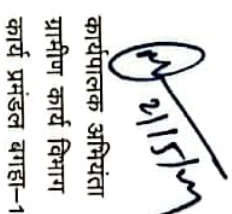 कार्यपालक अभियंता
ग्रामीण कार्य विभाग
कार्य प्रमंडल बगहा-1